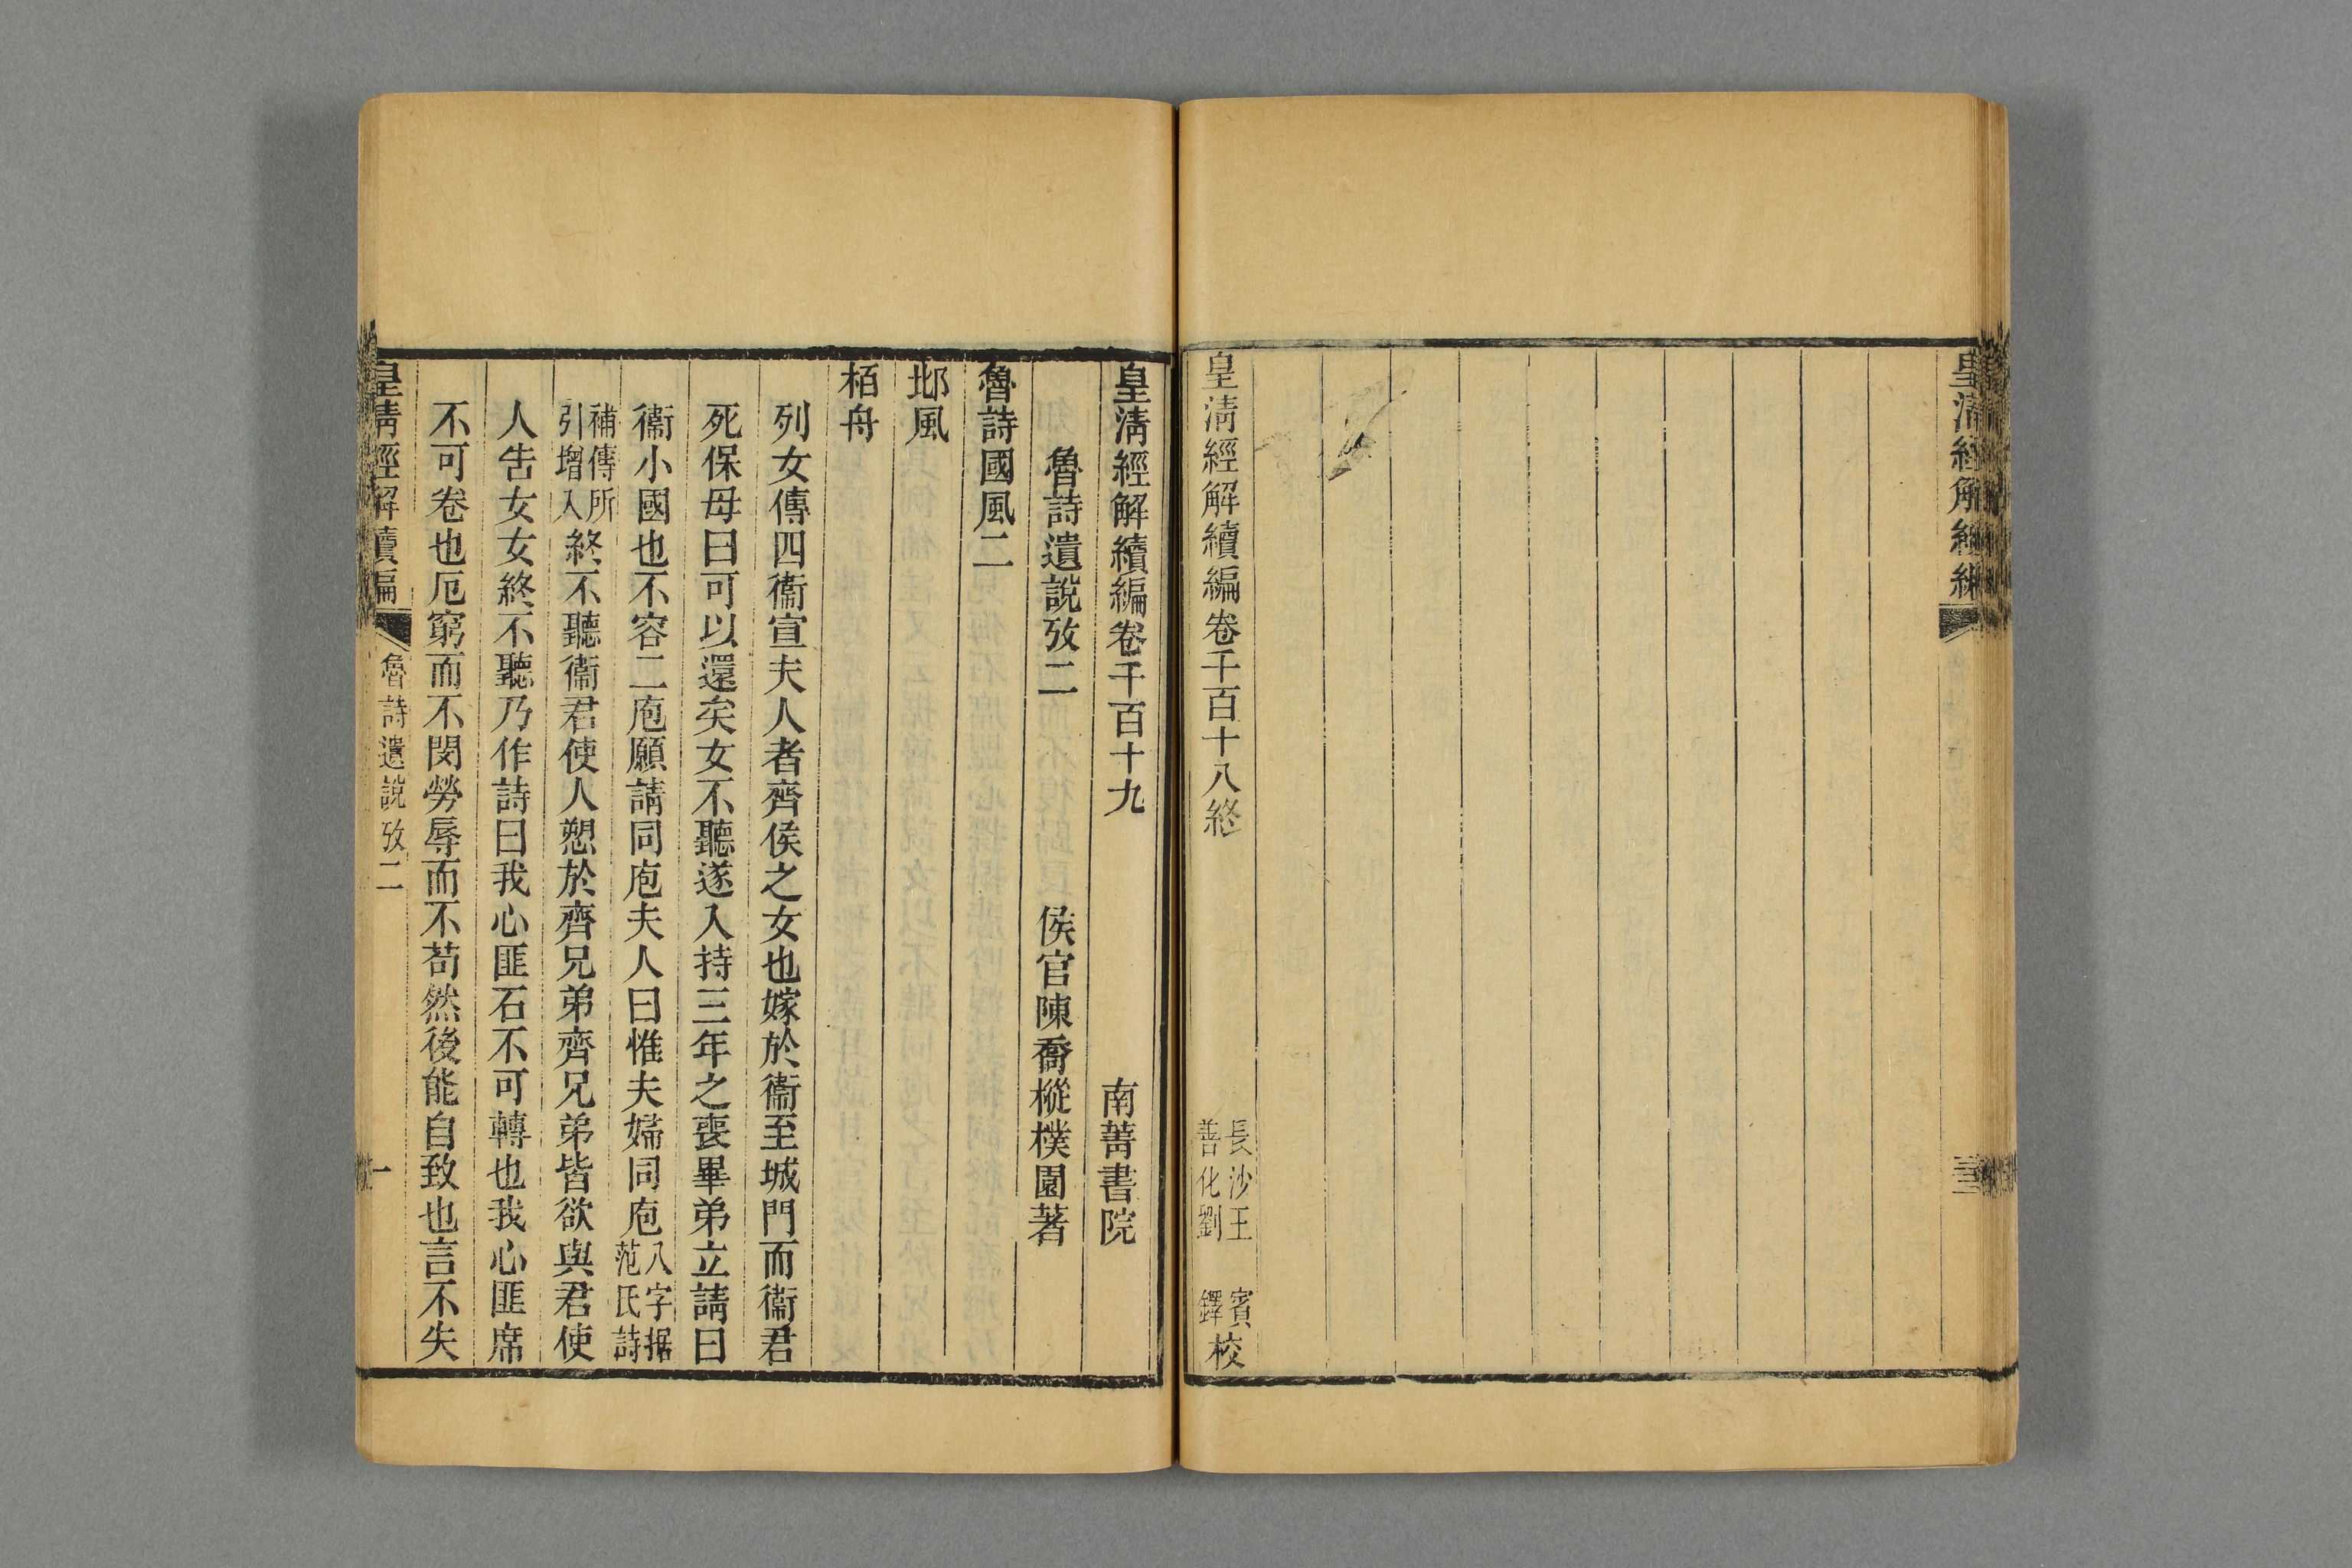 皇淸經解續編
三三
皇淸經解續編卷千百十八終
長沙王　賓
善化劉　鐸
校
皇淸經解續編卷千百十九　南菁書院
魯詩遺說攷二　侯官陳喬樅樸園著
魯詩國風二
邶風
栢舟
列女傳四衞宣夫人者齊侯之女也嫁於衞至城門而衞君
死保母曰可以還矣女不聽遂入持三年之喪畢弟立請曰
衞小國也不容二庖願請同庖夫人曰惟夫婦同庖八字据范氏詩
補傳所引增入終不聽衞君使人愬於齊兄弟齊兄弟皆欲與君使
人告女女終不聽乃作詩曰我心匪石不可轉也我心匪席
不可卷也厄窮而不閔勞辱而不苟然後能自致也言不失
皇淸經解續編　魯詩遺說攷二　一